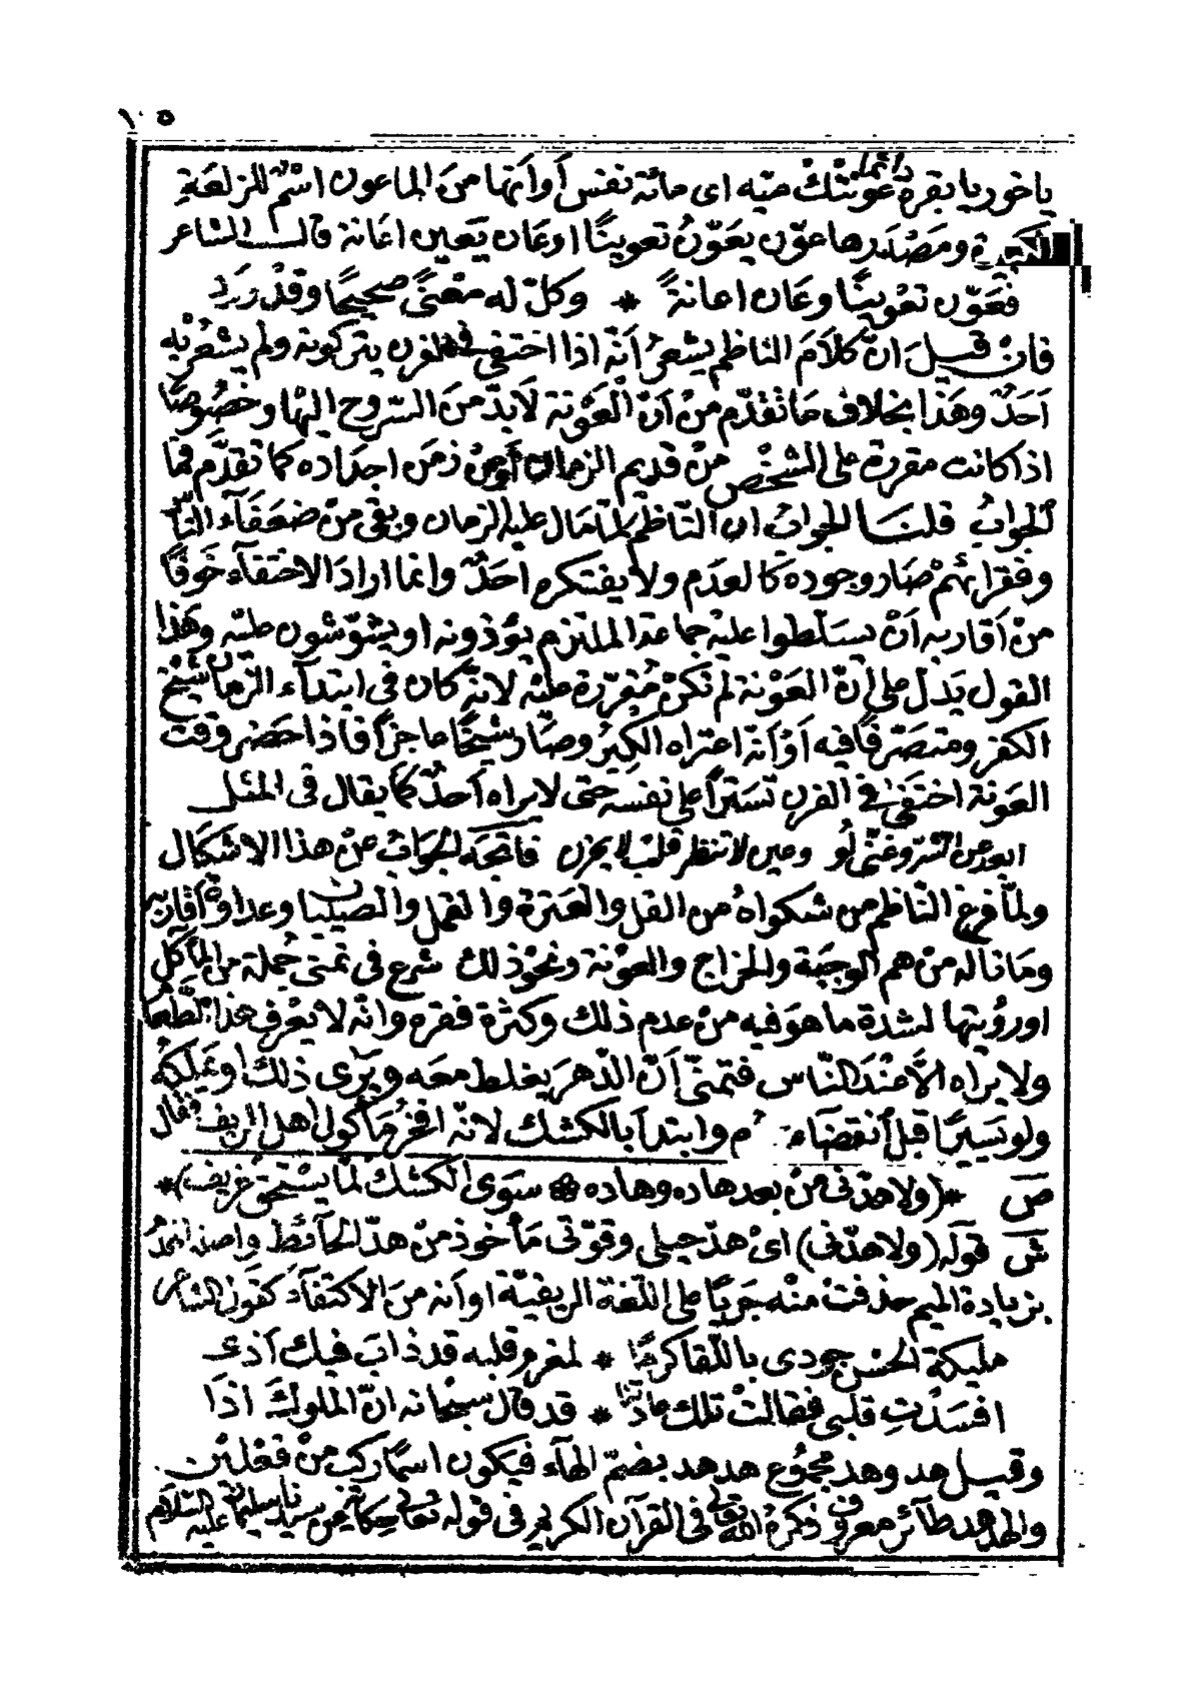 ١٠٥
ياخوريا بقرة دائما عونتك ميه اى مائة نفس أو أنها من الماعون اسم للزلعة
الكبيرة ومصدرها عوّن يعوّن تعوينًا او عان يعين اعانة قال الشاعر
فعوّن تعوينًا وعان اعانةً * وكلّ له معنًى صحيحًا وقد ورد
فان قيل انّ كلام الناظم يشعر أنّه اذا اختفى فى الفرن يتركونه ولم يشعر به
أحد وهذا بخلاف ما تقدّم من أنّ العونة لا بدّ من السّروح اليها وخصوصًا
اذا كانت مقررة على الشخص من قديم الزمان أو من زمن اجداده كما تقدّم فما
الجواب قلنا الجواب ان الناظم لمّا مال عليه الزمان وبقى من ضعفآء النّاس
وفقرائهم صار وجوده كالعدم ولا يفتكره احد وانما اراد الاختفآء خوفًا
من أقاربه أن يسلّطوا عليه جماعة الملتزم يؤذونه او يشوّشون عليه وهذا
القول يدل على انّ العونة لم تكن مقرّرة عليه لانّه كان فى ابتدآء الزمان شيخ
الكفر ومتصرّفًا فيه أو أنّه اعتراه الكبر وصار شيخًا عاجزًا فاذا حضر وقت
العونة اختفى فى الفرن تستراً على نفسه حتى لا يراه أحد كما يقال فى المثل
ابعد عن الشر وغنّى لو وعين لا تنظر قلب لا يحزن فاتجه الجواب عن هذا الاشكال
ولمّا فرغ النّاظم من شكواه من القل والعترة والقمل والصيبان وعداوة أقاربه
وما ناله من هم الوجبة والخراج والعونة ونحو ذلك شرع فى تمنى جملة من المآكل
او رؤيتها لشدة ما هو فيه من عدم ذلك وكثرة فقره وانّه لا يعرف هذا الطّعام
ولا يراه الّا عند النّاس فتمنّى أنّ الدّهر يغلط معه ويرى ذلك او يملكه
ولو يسيرًا قبل أنقضآء م وابتدأ بالكشك لانّه افخر مأكول اهل الريف فقال
ص * (ولا هدّنى من بعد هاده وهاده * سوى الكشك لمّا يستحق غريف) *
ش قوله (ولا هدّنى) اى هدّ حيلى وقوّتى مأخوذ من هدّ الحآئط واصله انهدّ
بزيادة الميم حذفت منه جريًا على اللّغة الريفيّة او أنه من الاكتفآء كقول الشاعر
مليكة الحسن جودى باللّقا كرمًا * لمغرم قلبه قد ذاب فيك أذى
افسدت قلبى فقالت تلك عادتنا * قد قال سبحانه انّ الملوك اذا
وقيل هد وهد مجموع هدهد بضمّ الهآء فيكون اسمًا ركب من فعلين
والهدهد طآئر معروف ذكره الله تعالى فى القرآن الكريم فى قوله تعالى حكاية عن سيدنا سليمان عليه السّلام